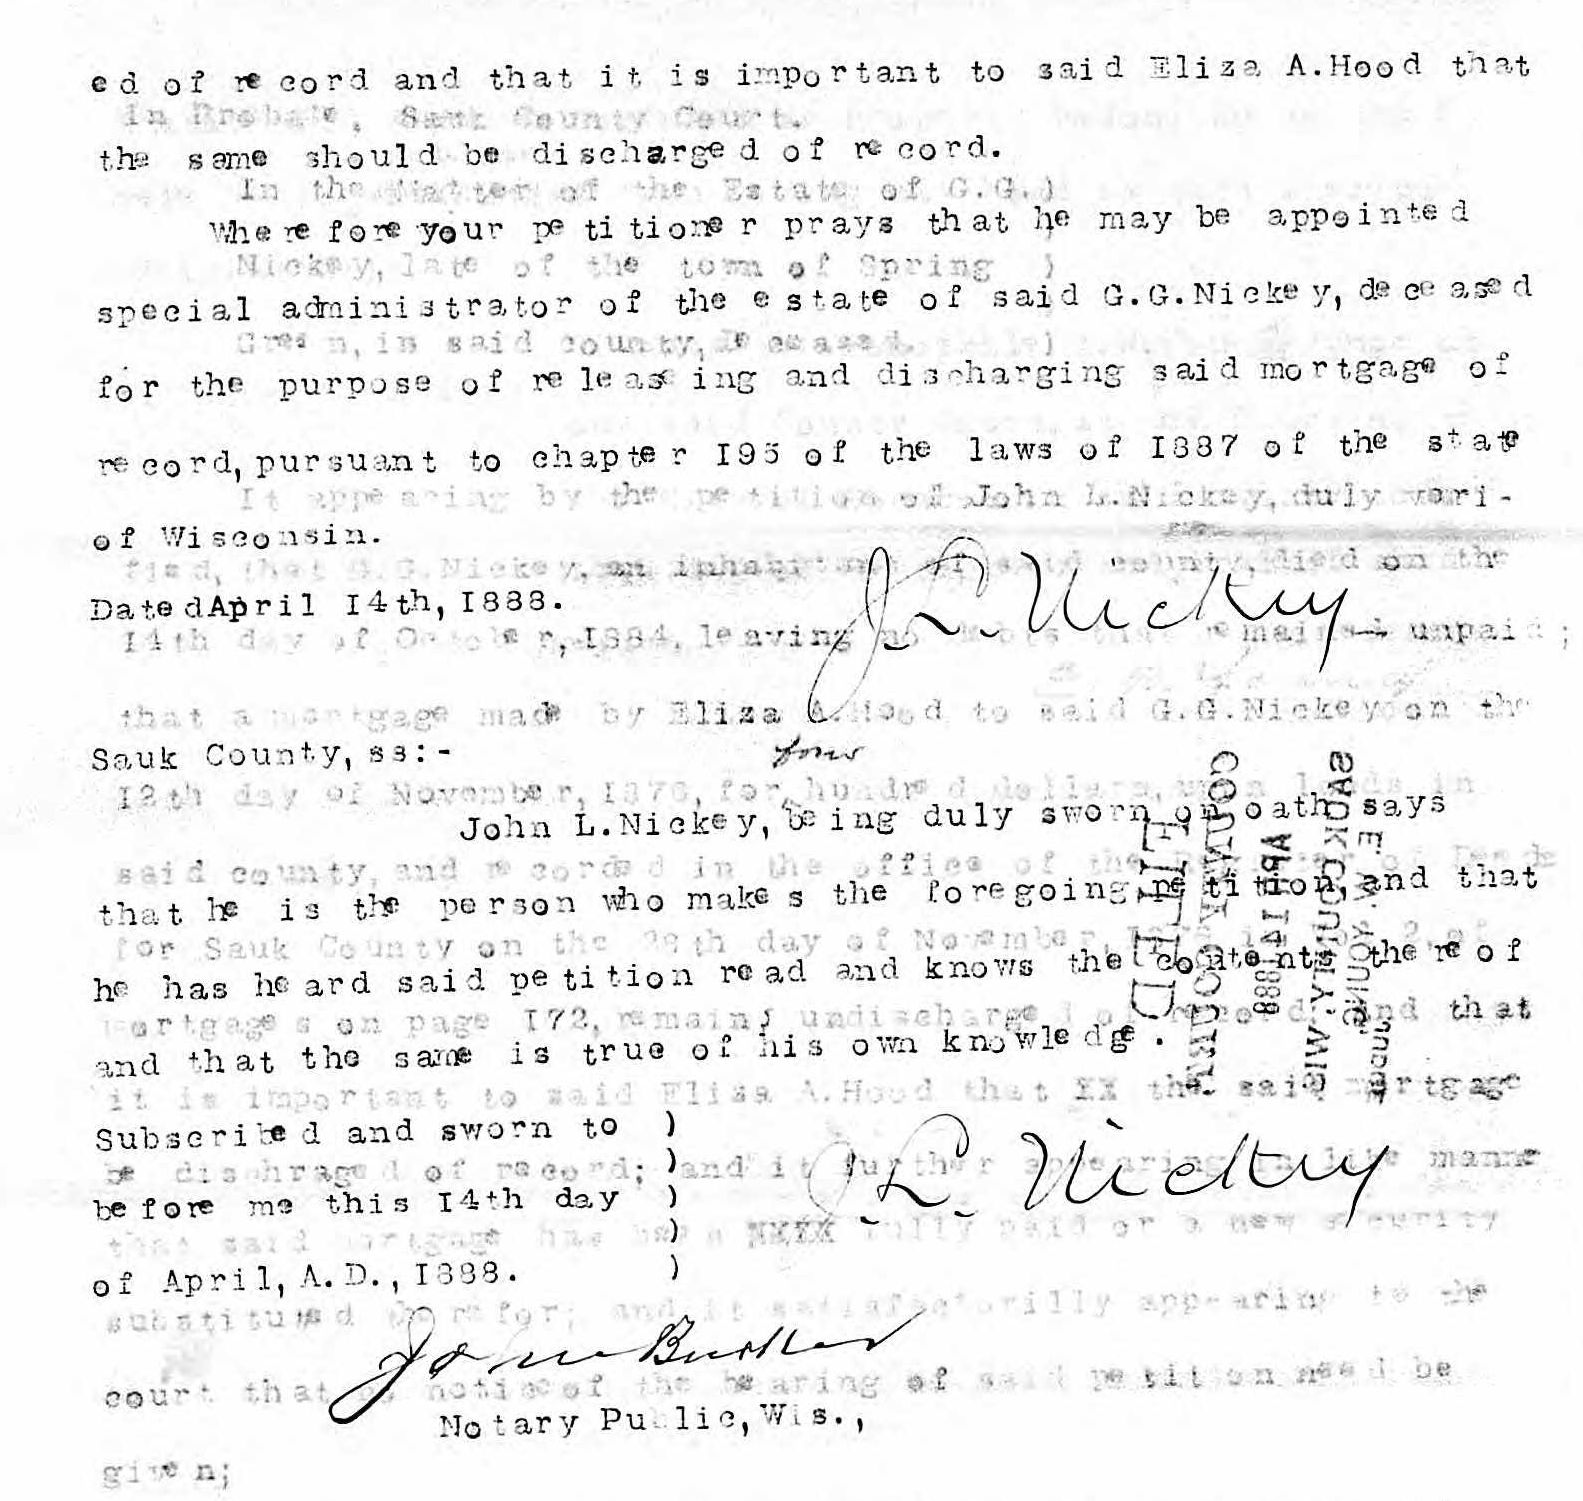 ed of record and that it is important to said Eliza A.Hood that
in Probate, Sauk County Court.
the same should be discharged of record.
In the Matter of the Estate of G.G.)
Wherefore your petitioner prays that he may be appointed
Nickey, late of the town of Spring )
special administrator of the estate of said G.G.Nickey, deceased
Green, in said county, deceased. )
for the purpose of releaseing and discharging said mortgage of
record, pursuant to chapter I95 of the laws of I887 of the state
It appearing by the petition of John L.Nickey, duly veri-
of Wisconsin.
fied, that G.G.Nickey, an inhabitant of said county, died on the
DatedApril I4th, I888.
J L. Nickey
I4th day of October, I884, leaving no debts that remained unpaid;
that a mortgage made by Eliza A.Hood to said G.G.Nickey on the
Sauk County, ss:-
four
I2th day of November, I876, for hundred dollars, upon lands in
John L.Nickey, being duly sworn on oath says
said county, and recorded in the office of the Register of Deeds
that he is the person who makes the foregoing petition, and that
for Sauk County on the 28th day of November,
he has heard said petition read and knows the contents thereof
mortgages on page I72, remains undischarged of record; and that
and that the same is true of his own knowledge.
FILED
COUNTY COURT
APR 14 1888
SAUK COUNTY, WIS.
E. W. YOUNG,
JUDGE
it is important to said Eliza A.Hood that XX the said mortgage
Subscribed and sworn to )
be dischraged of record; and it further appearing in like manner
before me this I4th day )
J L. Nickey
that said mortgage has been XXXX fully paid or a new security
of April, A.D., I888. )
substituted therefor; and it satisfactorilly appearing to the
John Barker
court that no notice of the hearing of said petition need be
Notary Public, Wis.,
given;